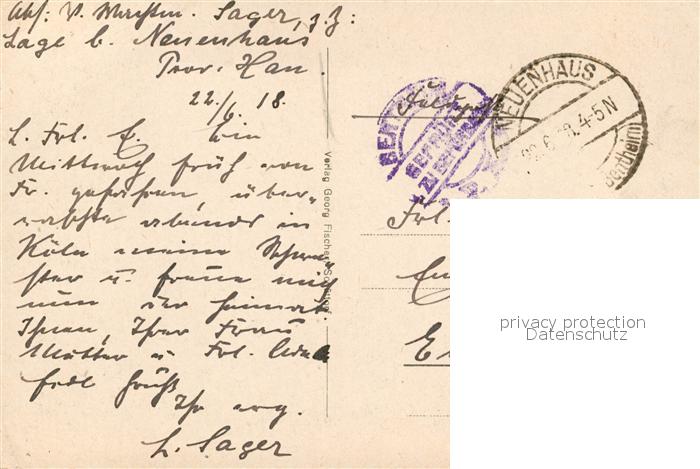 Abs: V. Wachtm. Sager, z. Z:
Lage b. Neuenhaus
Prov. Han
22./6 18.
L. Frl. E. Bin
Mittwoch früh von
Fr. gefahren, über-
raschte abends in
Köln meine Schwe-
ster u. freue mich
nun der Heimat.
Ihnen, Ihrer Frau
Mutter u. Frl.
herzl Grüß
Ihr erg.
L. Sager
Verlag Georg Fischer,
Feldpost
NEUENHAUS
22.6.18.4-5N
BENT
GEPRÜFT
Frl.
privacy protection
Datenschutz